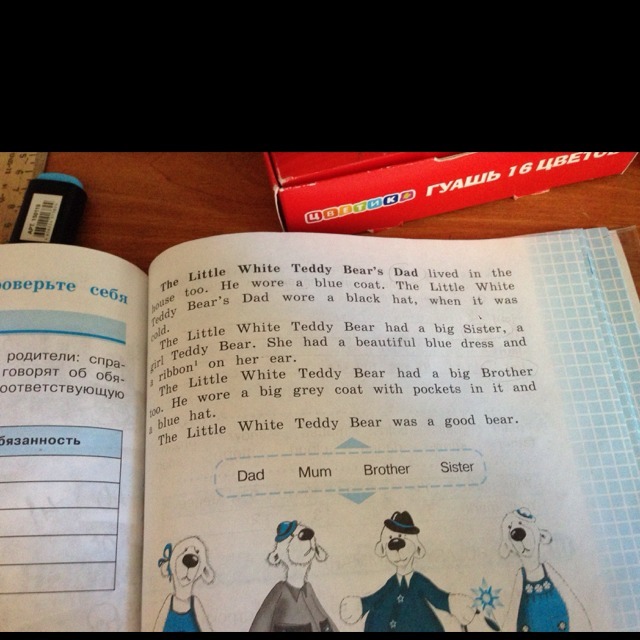 ЦВЕТИК
ГУАШЬ 16 ЦВЕТОВ
роверьте себя
родители: спра-
говорят об обя-
оответствующую
бязанность
The Little White Teddy Bear's Dad lived in the
house too. He wore a blue coat. The Little White
Teddy Bear's Dad wore a black hat, when it was
cold.
The Little White Teddy Bear had a big Sister, a
girl Teddy Bear. She had a beautiful blue dress and
a ribbon¹ on her ear.
The Little White Teddy Bear had a big Brother
too. He wore a big grey coat with pockets in it and
a blue hat.
The Little White Teddy Bear was a good bear.
Dad Mum Brother Sister